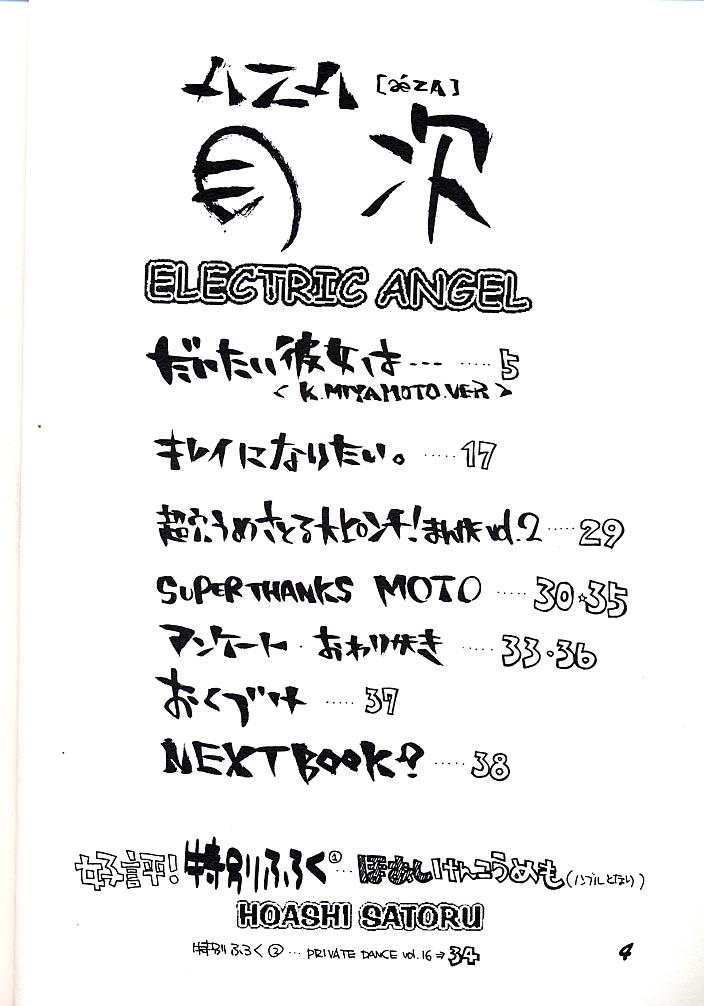 AZA [aéZA]
目次
ELECTRIC ANGEL
だいたい彼女は… ····· 5
<K.MIYAMOTO.VER>
キレイになりたい。 ····· 17
超穴うめさとる大ピンチ!まんが vol.2 ····· 29
SUPER THANKS MOTO ····· 30☆35
アンケート・おわりがき ····· 33・36
おくづけ ····· 37
NEXT BOOK? ····· 38
好評!特別ふろく①… ほあしけんこうめも
HOASHI SATORU
特別ふろく②… PRIVATE DANCE vol.16⇒34
4